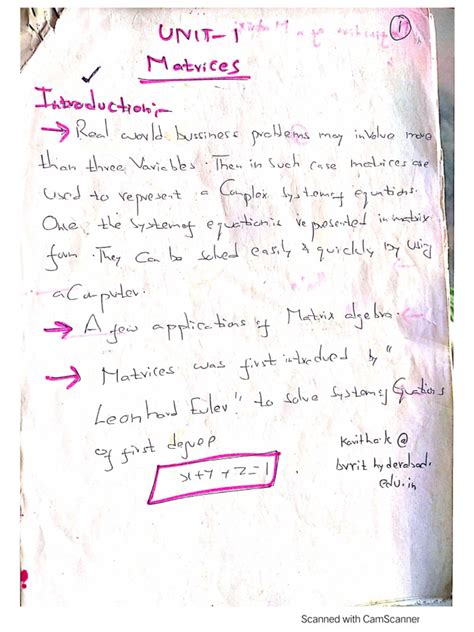 UNIT-1
1
Matrices
Introduction:-
→ Real world bussiness problems may involve more
than three Variables. Then in Such case matrices are
used to represent a Complex Systemof equations.
One, the Systemof equation is represented in matrix
form. They Can be solved easily & quickly by Using
a Computer.
→ A few applications of Matrix algebra.
→ Matrices was first introdued by "
Leonhard Euler" to solve Systemof Equations
of first
x+y+z=1
Kavitha.k@
bvrit hyderabad.
edu.in
Scanned with CamScanner